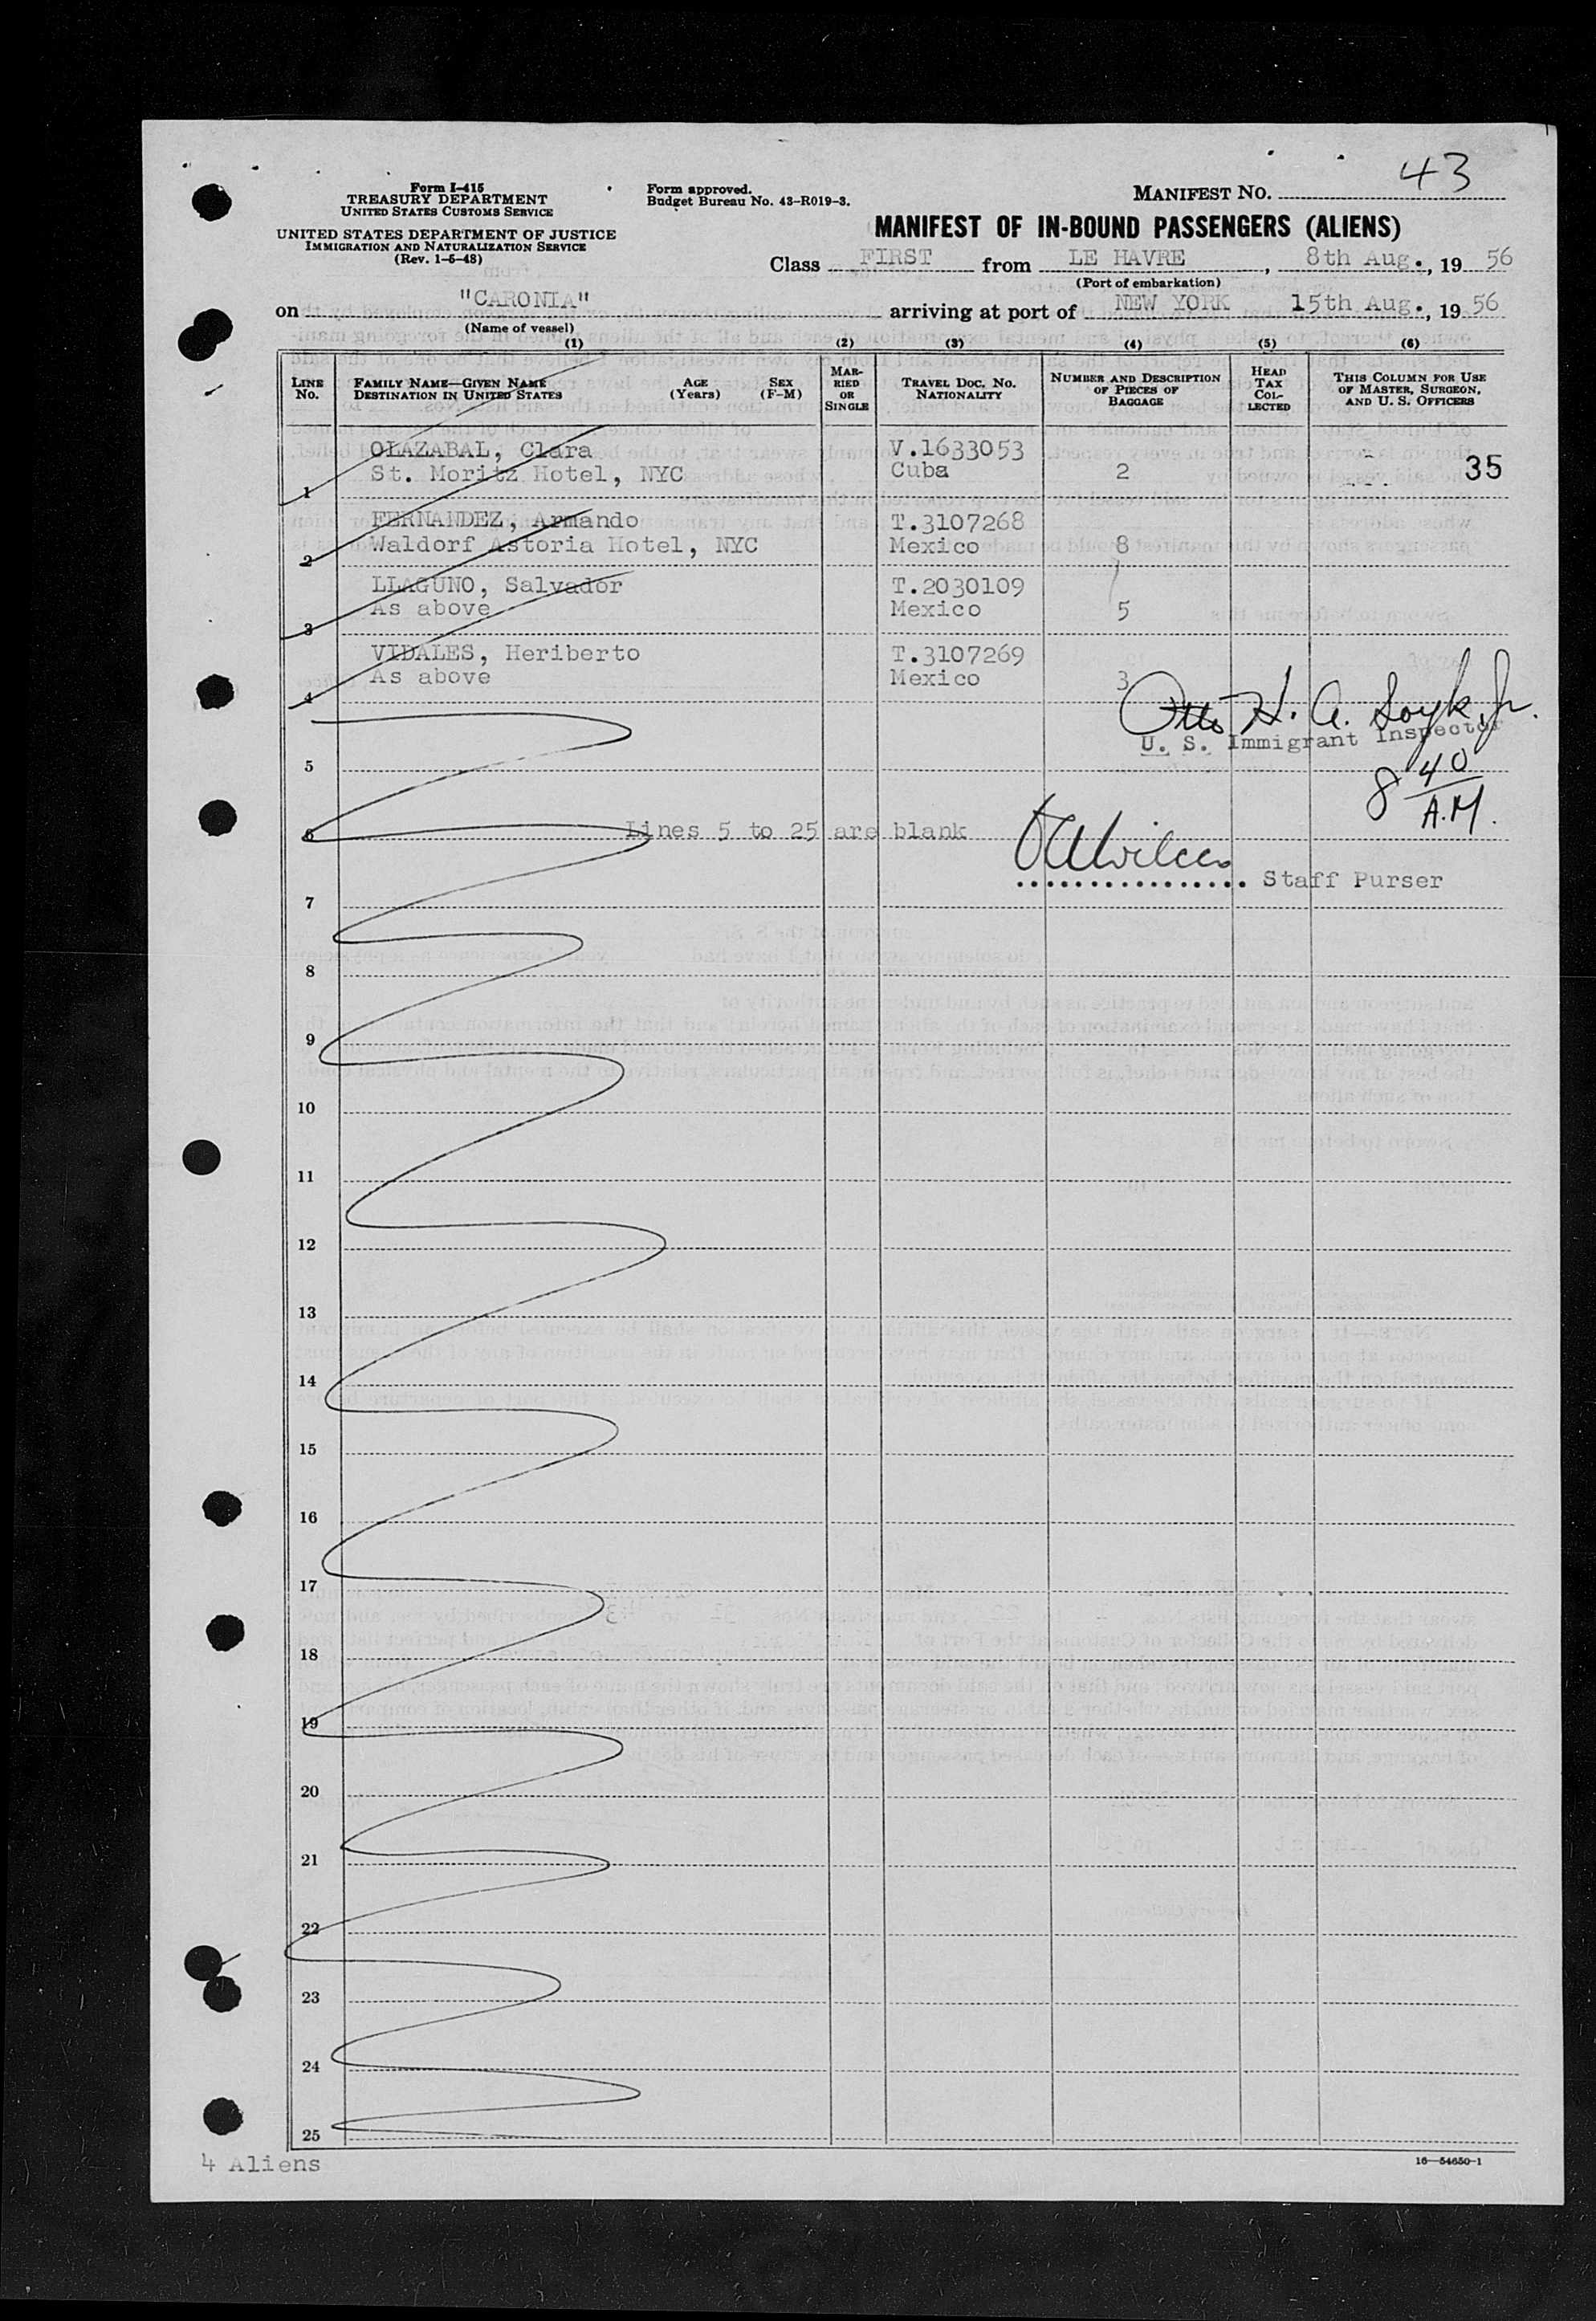 43
Form I-415
TREASURY DEPARTMENT
UNITED STATES CUSTOMS SERVICE
UNITED STATES DEPARTMENT OF JUSTICE
IMMIGRATION AND NATURALIZATION SERVICE
(Rev. 1-5-48)
Form approved.
Budget Bureau No. 43-R019-3.
MANIFEST NO.
MANIFEST OF IN-BOUND PASSENGERS (ALIENS)
Class FIRST from LE HAVRE, 8th Aug., 1956
(Port of embarkation)
on "CARONIA" arriving at port of NEW YORK 15th Aug., 1956
(Name of vessel)
(1) (2) (3) (4) (5) (6)
LINE No.
FAMILY NAME—GIVEN NAME
DESTINATION IN UNITED STATES
AGE (Years)
SEX (F-M)
MARRIED OR SINGLE
TRAVEL DOC. NO. NATIONALITY
NUMBER AND DESCRIPTION OF PIECES OF BAGGAGE
HEAD TAX COLLECTED
THIS COLUMN FOR USE OF MASTER, SURGEON, AND U. S. OFFICERS
OLAZABAL, Clara V.1633053
1 St. Moritz Hotel, NYC Cuba 2 35
FERNANDEZ, Armando T.3107268
2 Waldorf Astoria Hotel, NYC Mexico 8
LLAGUNO, Salvador T.2030109
3 As above Mexico 5
VIDALES, Heriberto T.3107269
4 As above Mexico 3
Otto H. A. Soyk, Jr.
U. S. Immigrant Inspector
5
8 40
A.M.
6 Lines 5 to 25 are blank
Staff Purser
7
8
9
10
11
12
13
14
15
16
17
18
19
20
21
22
23
24
25
4 Aliens
16—54650-1